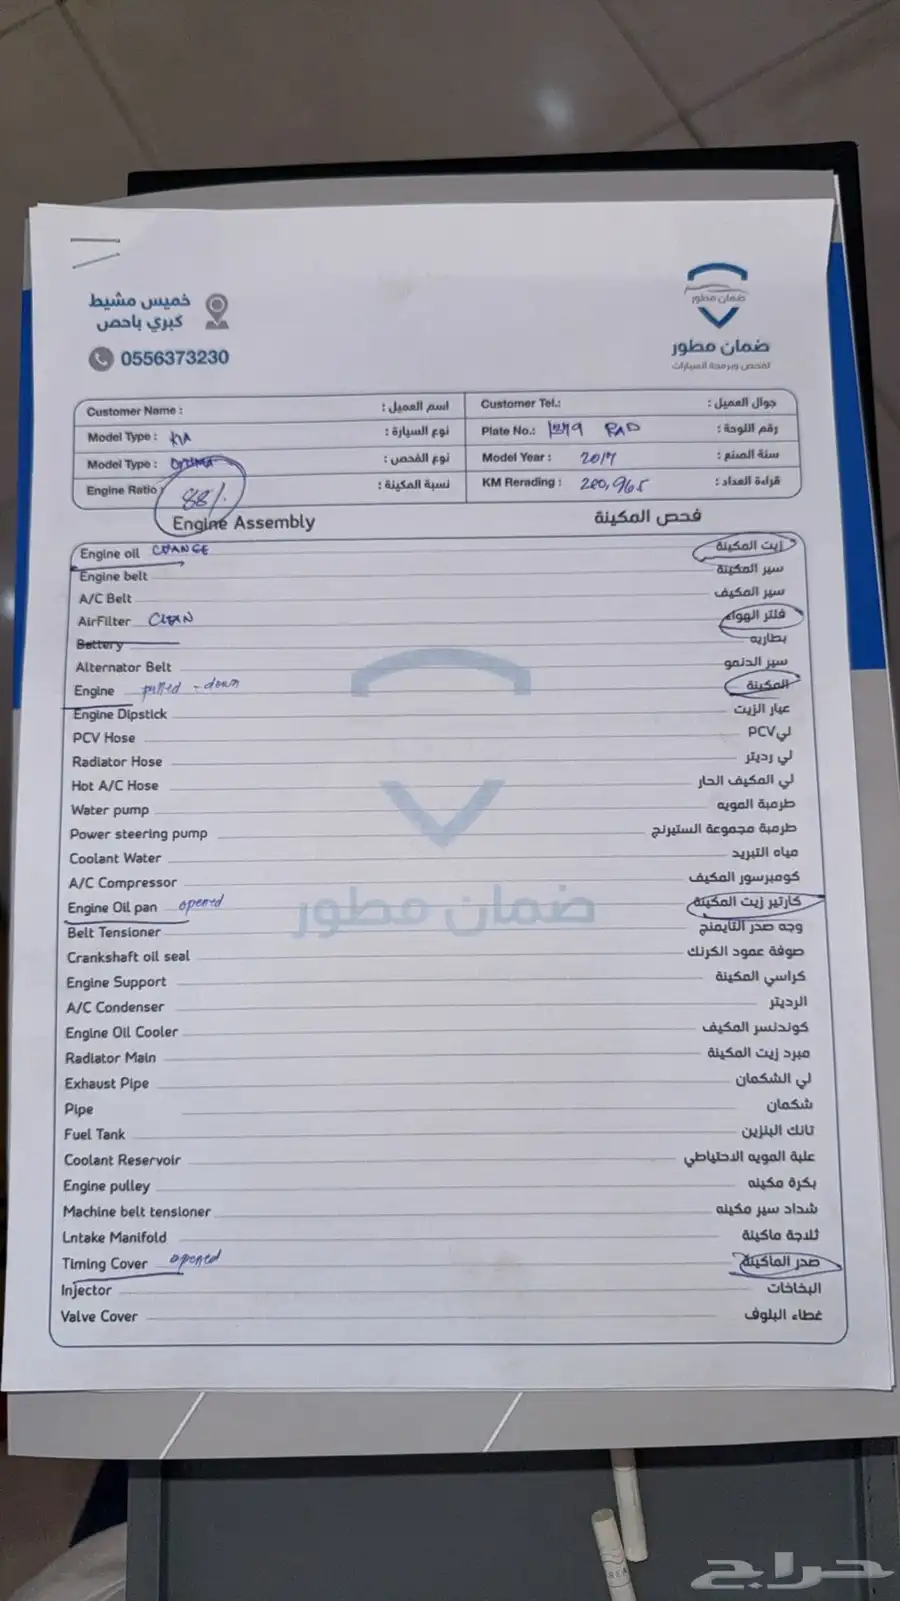 خميس مشيط
كبري باحص
0556373230
ضمان مطور
ضمان مطور
لفحص وبرمجة السيارات
Customer Name : اسم العميل :
Customer Tel.: جوال العميل :
Model Type : KIA نوع السيارة :
Plate No.: 1279 RAD رقم اللوحة :
Model Type : OPTIMA نوع الفحص :
Model Year : 2017 سنة الصنع :
Engine Ratio : 88% نسبة المكينة :
KM Rerading : 280,965 قراءة العداد :
Engine Assembly فحص المكينة
Engine oil CHANGE زيت المكينة
Engine belt سير المكينة
A/C Belt سير المكيف
AirFilter CLEAN فلتر الهواء
Battery بطاريه
Alternator Belt سير الدنمو
Engine pulled - down المكينة
Engine Dipstick عيار الزيت
PCV Hose لي PCV
Radiator Hose لي رديتر
Hot A/C Hose لي المكيف الحار
Water pump طرمبة المويه
Power steering pump طرمبة مجموعة الستيرنج
Coolant Water مياه التبريد
A/C Compressor كومبرسور المكيف
Engine Oil pan opened كارتير زيت المكينة
Belt Tensioner وجه صدر التايمنج
Crankshaft oil seal صوفة عمود الكرنك
Engine Support كراسي المكينة
A/C Condenser الرديتر
Engine Oil Cooler كوندنسر المكيف
Radiator Main مبرد زيت المكينة
Exhaust Pipe لي الشكمان
Pipe شكمان
Fuel Tank تانك البنزين
Coolant Reservoir علبة المويه الاحتياطي
Engine pulley بكرة مكينه
Machine belt tensioner شداد سير مكينه
Lntake Manifold ثلاجة ماكينة
Timing Cover opened صدر الماكينة
Injector البخاخات
Valve Cover غطاء البلوف
ضمان مطور
حراج